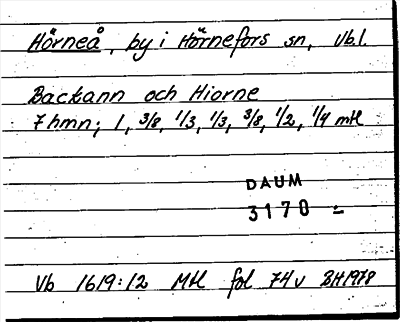 Hörneå, by i Hörnefors sn, Vb.l.
Backann och Hiorne
7 hmn; 1, 3/8, 1/3, 1/3, 3/8, 1/2, 1/4 mtl
DAUM
3170
Vb 1619:12 Mtl fol 74v BH1978